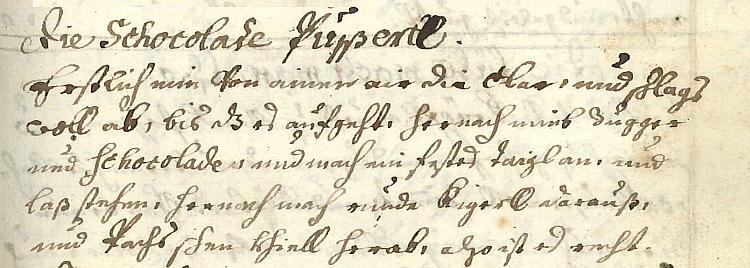 Die Schocolade Pusserll.
Erstlich nim von ainen air die Clar, und schlags
woll ab, bis dz es aufgeht, hernach nimb Zugger
und schocolade, und mach ein festes taigl an, und
laß stehen, hernach mach runde Kigerl darauß,
und Pachs schen khiell herab, also ist es recht.